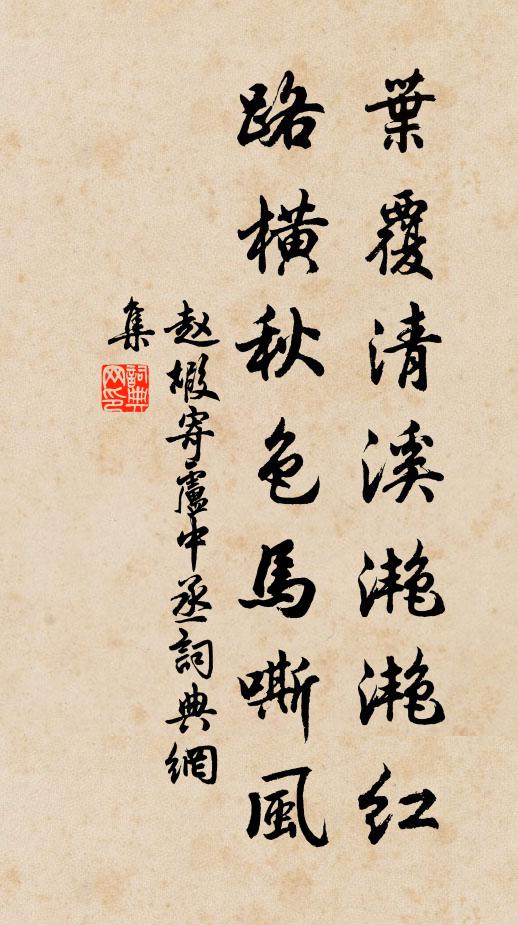 葉覆清溪灔灔紅
路橫秋色馬嘶風
赵嘏寄盧中丞詞典網
集
詞典
网印